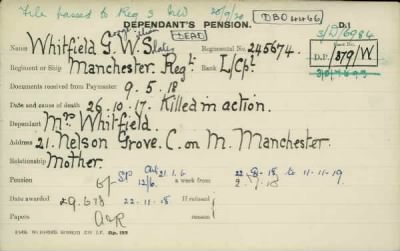 File passed to Reg 3 20/9/20
DBO 4466
DEPENDANT'S PENSION.
D.1
3/D/6984
Name Whitfield G. W. S. DEAD Regimental No. 245674.
D.P. 579/W
Regiment or Ship Manchester. Regt. Rank L/Cpl.
Documents received from Paymaster 9. 5. 18
Date and cause of death 26. 10. 17. Killed in action.
Dependant Mrs Whitfield.
Address 21. Nelson Grove. C. on M. Manchester.
Relationship Mother.
Pension 12/6 a week from 22-8-18 to 11-11-19
Date awarded 22-11-18 If refused
Papers reason